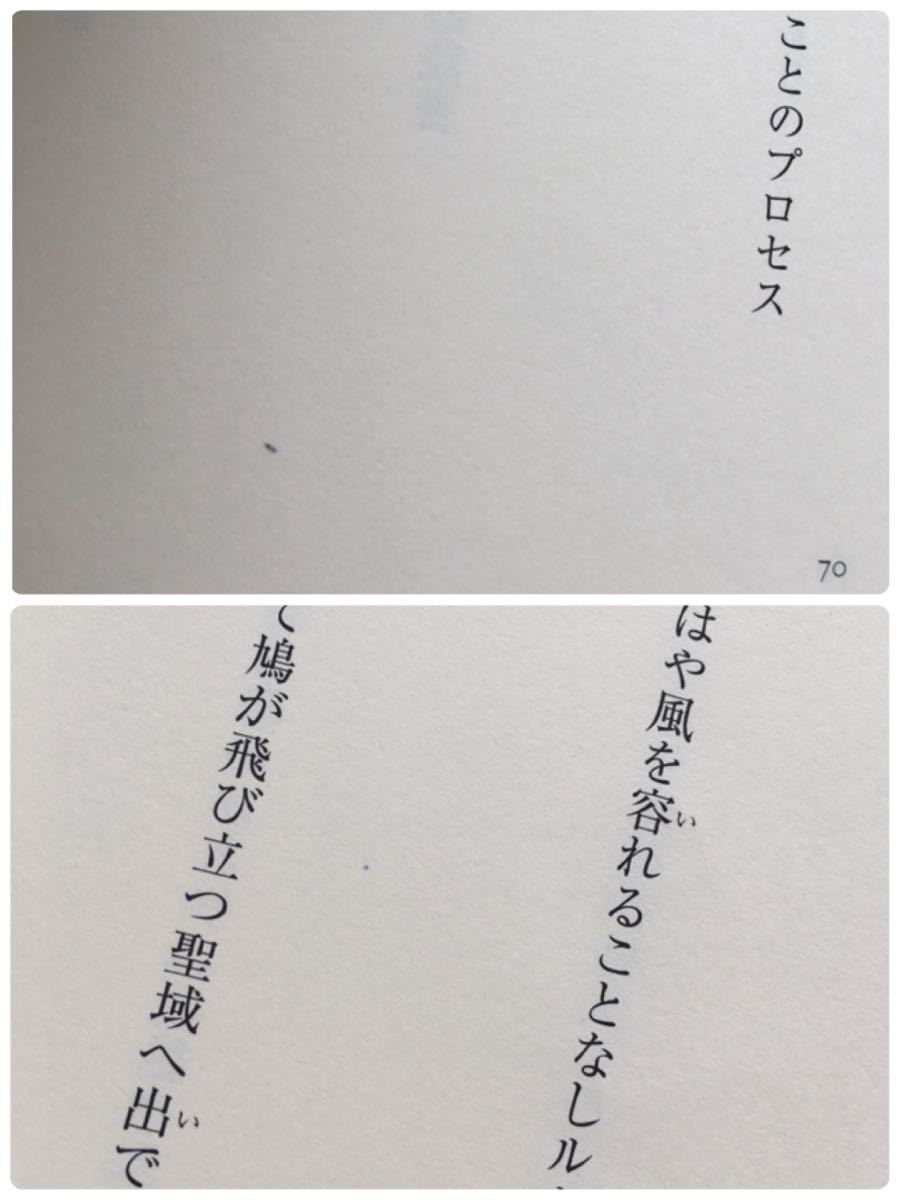 ことのプロセス
70
はや風を容れることなしル
い
て鳩が飛び立つ聖域へ出で
い